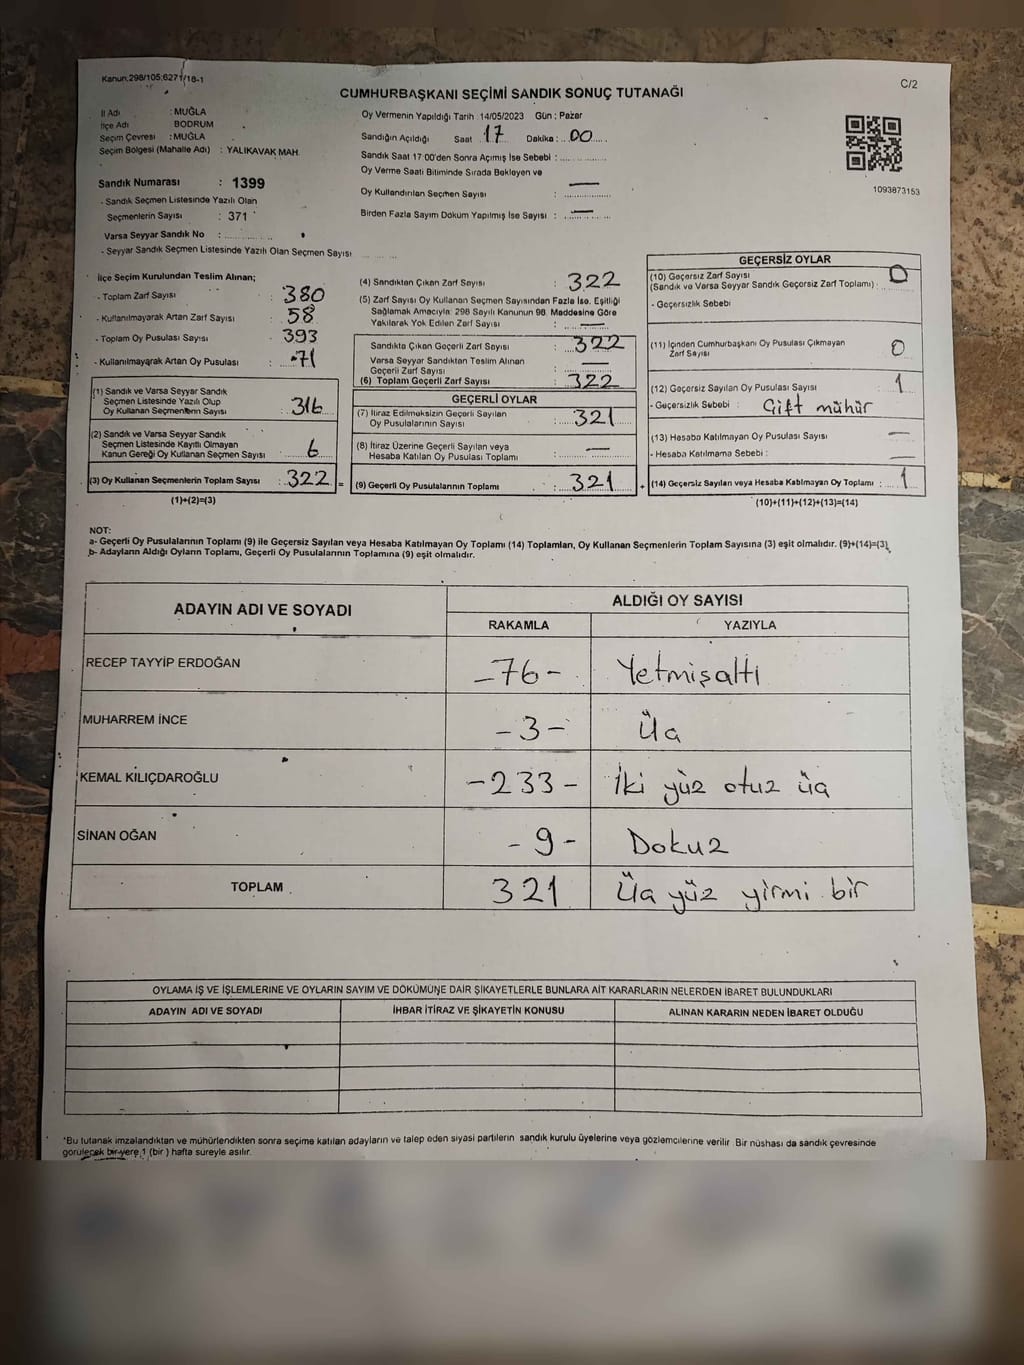 Kanun:298/105,6271/18-1
C/2
CUMHURBAŞKANI SEÇİMİ SANDIK SONUÇ TUTANAĞI
İl Adı : MUĞLA
İlçe Adı BODRUM
Seçim Çevresi : MUĞLA
Seçim Bölgesi (Mahalle Adı) : YALIKAVAK MAH.
Sandık Numarası : 1399
- Sandık Seçmen Listesinde Yazılı Olan
Seçmenlerin Sayısı : 371
Varsa Seyyar Sandık No :
- Seyyar Sandık Seçmen Listesinde Yazılı Olan Seçmen Sayısı
Oy Vermenin Yapıldığı Tarih : 14/05/2023 Gün : Pazar
Sandığın Açıldığı Saat : 17 Dakika : 00
Sandık Saat 17:00'den Sonra Açımış İse Sebebi :
Oy Verme Saati Bitiminde Sırada Bekleyen ve
Oy Kullandırılan Seçmen Sayısı : —
Birden Fazla Sayım Döküm Yapılmış İse Sayısı : —
1093873153
İlçe Seçim Kurulundan Teslim Alınan;
- Toplam Zarf Sayısı : 380
- Kullanılmayarak Artan Zarf Sayısı : 58
- Toplam Oy Pusulası Sayısı : 393
- Kullanılmayarak Artan Oy Pusulası : 71
(1) Sandık ve Varsa Seyyar Sandık
Seçmen Listesinde Yazılı Olup
Oy Kullanan Seçmenlerin Sayısı : 316
(2) Sandık ve Varsa Seyyar Sandık
Seçmen Listesinde Kayıtlı Olmayan
Kanun Gereği Oy Kullanan Seçmen Sayısı : 6
(3) Oy Kullanan Seçmenlerin Toplam Sayısı : 322 =
(1)+(2)=(3)
(4) Sandıktan Çıkan Zarf Sayısı : 322
(5) Zarf Sayısı Oy Kullanan Seçmen Sayısından Fazla İse, Eşitliği
Sağlamak Amacıyla: 298 Sayılı Kanunun 98. Maddesine Göre
Yakılarak Yok Edilen Zarf Sayısı : —
Sandıkta Çıkan Geçerli Zarf Sayısı : 322
Varsa Seyyar Sandıktan Teslim Alınan
Geçerli Zarf Sayısı : —
(6) Toplam Geçerli Zarf Sayısı : 322
GEÇERLİ OYLAR
(7) İtiraz Edilmeksizin Geçerli Sayılan
Oy Pusulalarının Sayısı : 321
(8) İtiraz Üzerine Geçerli Sayılan veya
Hesaba Katılan Oy Pusulası Toplamı : —
(9) Geçerli Oy Pusulalarının Toplamı : 321 +
GEÇERSİZ OYLAR
(10) Geçersiz Zarf Sayısı
(Sandık ve Varsa Seyyar Sandık Geçersiz Zarf Toplamı) : 0
- Geçersizlik Sebebi
(11) İçinden Cumhurbaşkanı Oy Pusulası Çıkmayan
Zarf Sayısı 0
(12) Geçersiz Sayılan Oy Pusulası Sayısı : 1
- Geçersizlik Sebebi : Çift mühür
(13) Hesaba Katılmayan Oy Pusulası Sayısı —
- Hesaba Katılmama Sebebi : —
(14) Geçersiz Sayılan veya Hesaba Katılmayan Oy Toplamı : 1
(10)+(11)+(12)+(13)=(14)
NOT:
a- Geçerli Oy Pusulalarının Toplamı (9) ile Geçersiz Sayılan veya Hesaba Katılmayan Oy Toplamı (14) Toplamları, Oy Kullanan Seçmenlerin Toplam Sayısına (3) eşit olmalıdır. (9)+(14)=(3)
b- Adayların Aldığı Oyların Toplamı, Geçerli Oy Pusulalarının Toplamına (9) eşit olmalıdır.
ADAYIN ADI VE SOYADI
ALDIĞI OY SAYISI
RAKAMLA YAZIYLA
RECEP TAYYİP ERDOĞAN -76- Yetmişaltı
MUHARREM İNCE -3- Üç
KEMAL KILIÇDAROĞLU -233- İki yüz otuz üç
SİNAN OĞAN -9- Dokuz
TOPLAM 321 Üç yüz yirmi bir
OYLAMA İŞ VE İŞLEMLERİNE VE OYLARIN SAYIM VE DÖKÜMÜNE DAİR ŞİKAYETLERLE BUNLARA AİT KARARLARIN NELERDEN İBARET BULUNDUKLARI
ADAYIN ADI VE SOYADI İHBAR İTİRAZ VE ŞİKAYETİN KONUSU ALINAN KARARIN NEDEN İBARET OLDUĞU
*Bu tutanak imzalandıktan ve mühürlendikten sonra seçime katılan adayların ve talep eden siyasi partilerin sandık kurulu üyelerine veya gözlemcilerine verilir. Bir nüshası da sandık çevresinde
görülecek bir yere 1 (bir) hafta süreyle asılır.